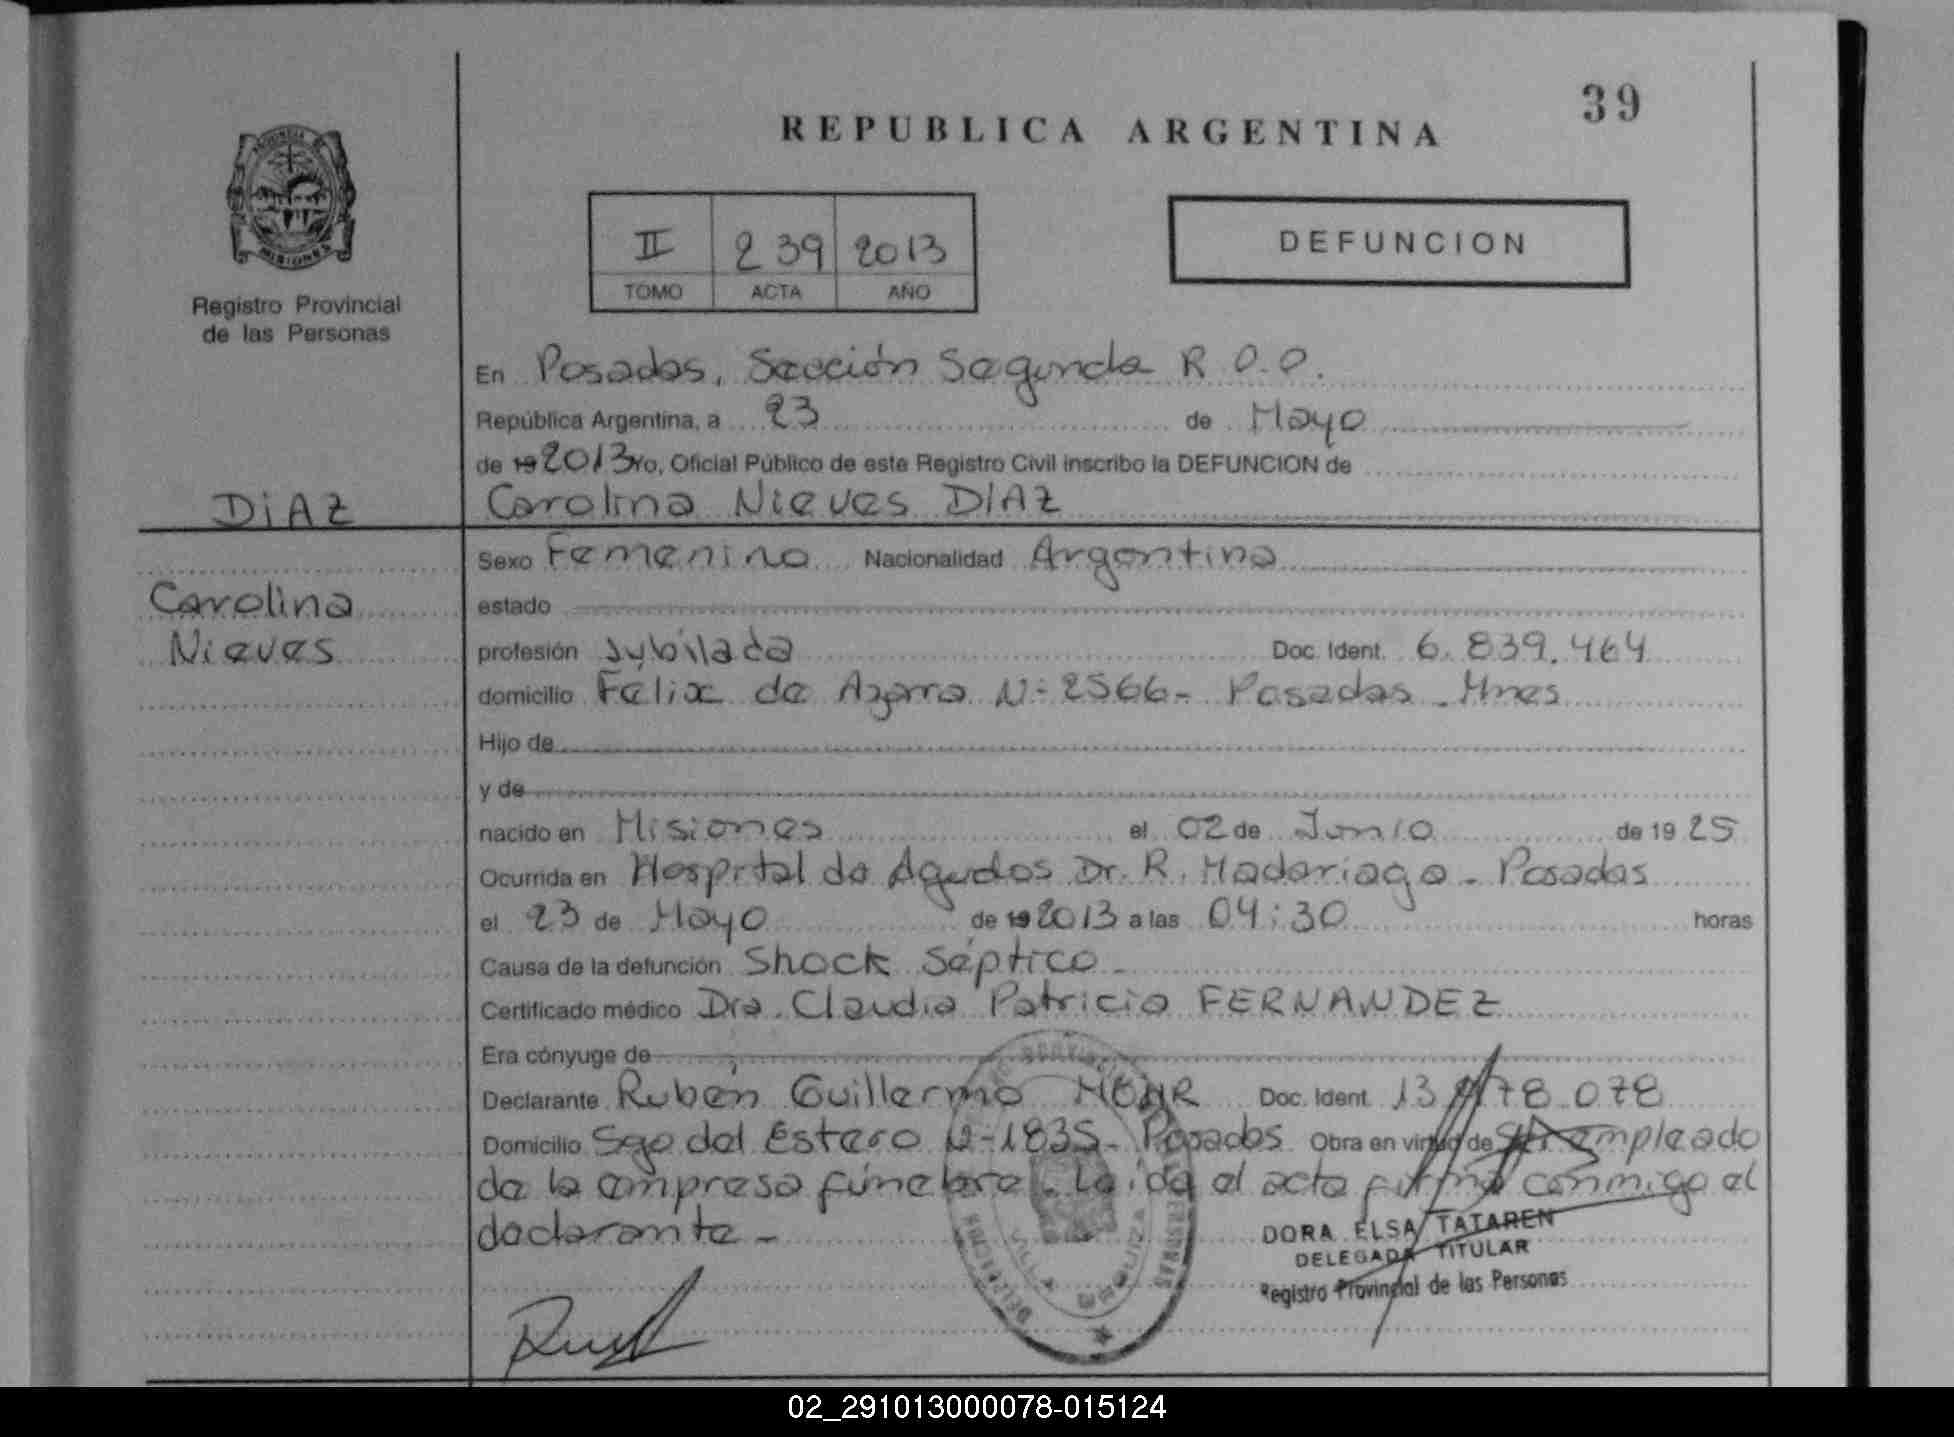 39
REPUBLICA ARGENTINA
MISIONES
Registro Provincial
de las Personas
II 239 2013
TOMO ACTA AÑO
DEFUNCION
En Posadas, Sección Segunda R.O.O.
República Argentina, a 23 de Mayo
de 19 2013 Yo, Oficial Público de este Registro Civil inscribo la DEFUNCION de
DiAZ
Carolina Nieves DIAZ
Carolina
Nieves
Sexo Femenino Nacionalidad Argentina
estado
profesión Jubilada Doc. Ident. 6.839.464
domicilio Felix de Azara N- 2566- Posadas - Mnes
Hijo de
y de
nacido en Misiones el 02 de Junio de 19 25
Ocurrida en Hospital de Agudos Dr. R. Madariaga - Posadas
el 23 de Mayo de 19 2013 a las 04:30 horas
Causa de la defunción Shock Séptico -
Certificado médico Dra. Claudia Patricia FERNANDEZ
Era cónyuge de
Declarante Rubén Guillermo Doc. Ident. 078
Domicilio Sgo del Estero N-1835- Posadas Obra en virtud de empleado
de la empresa fúnebre. Leida el acta firma conmigo el
declarante -
DORA ELSA TATAREN
DELEGADA TITULAR
Registro Provincial de las Personas
02_291013000078-015124